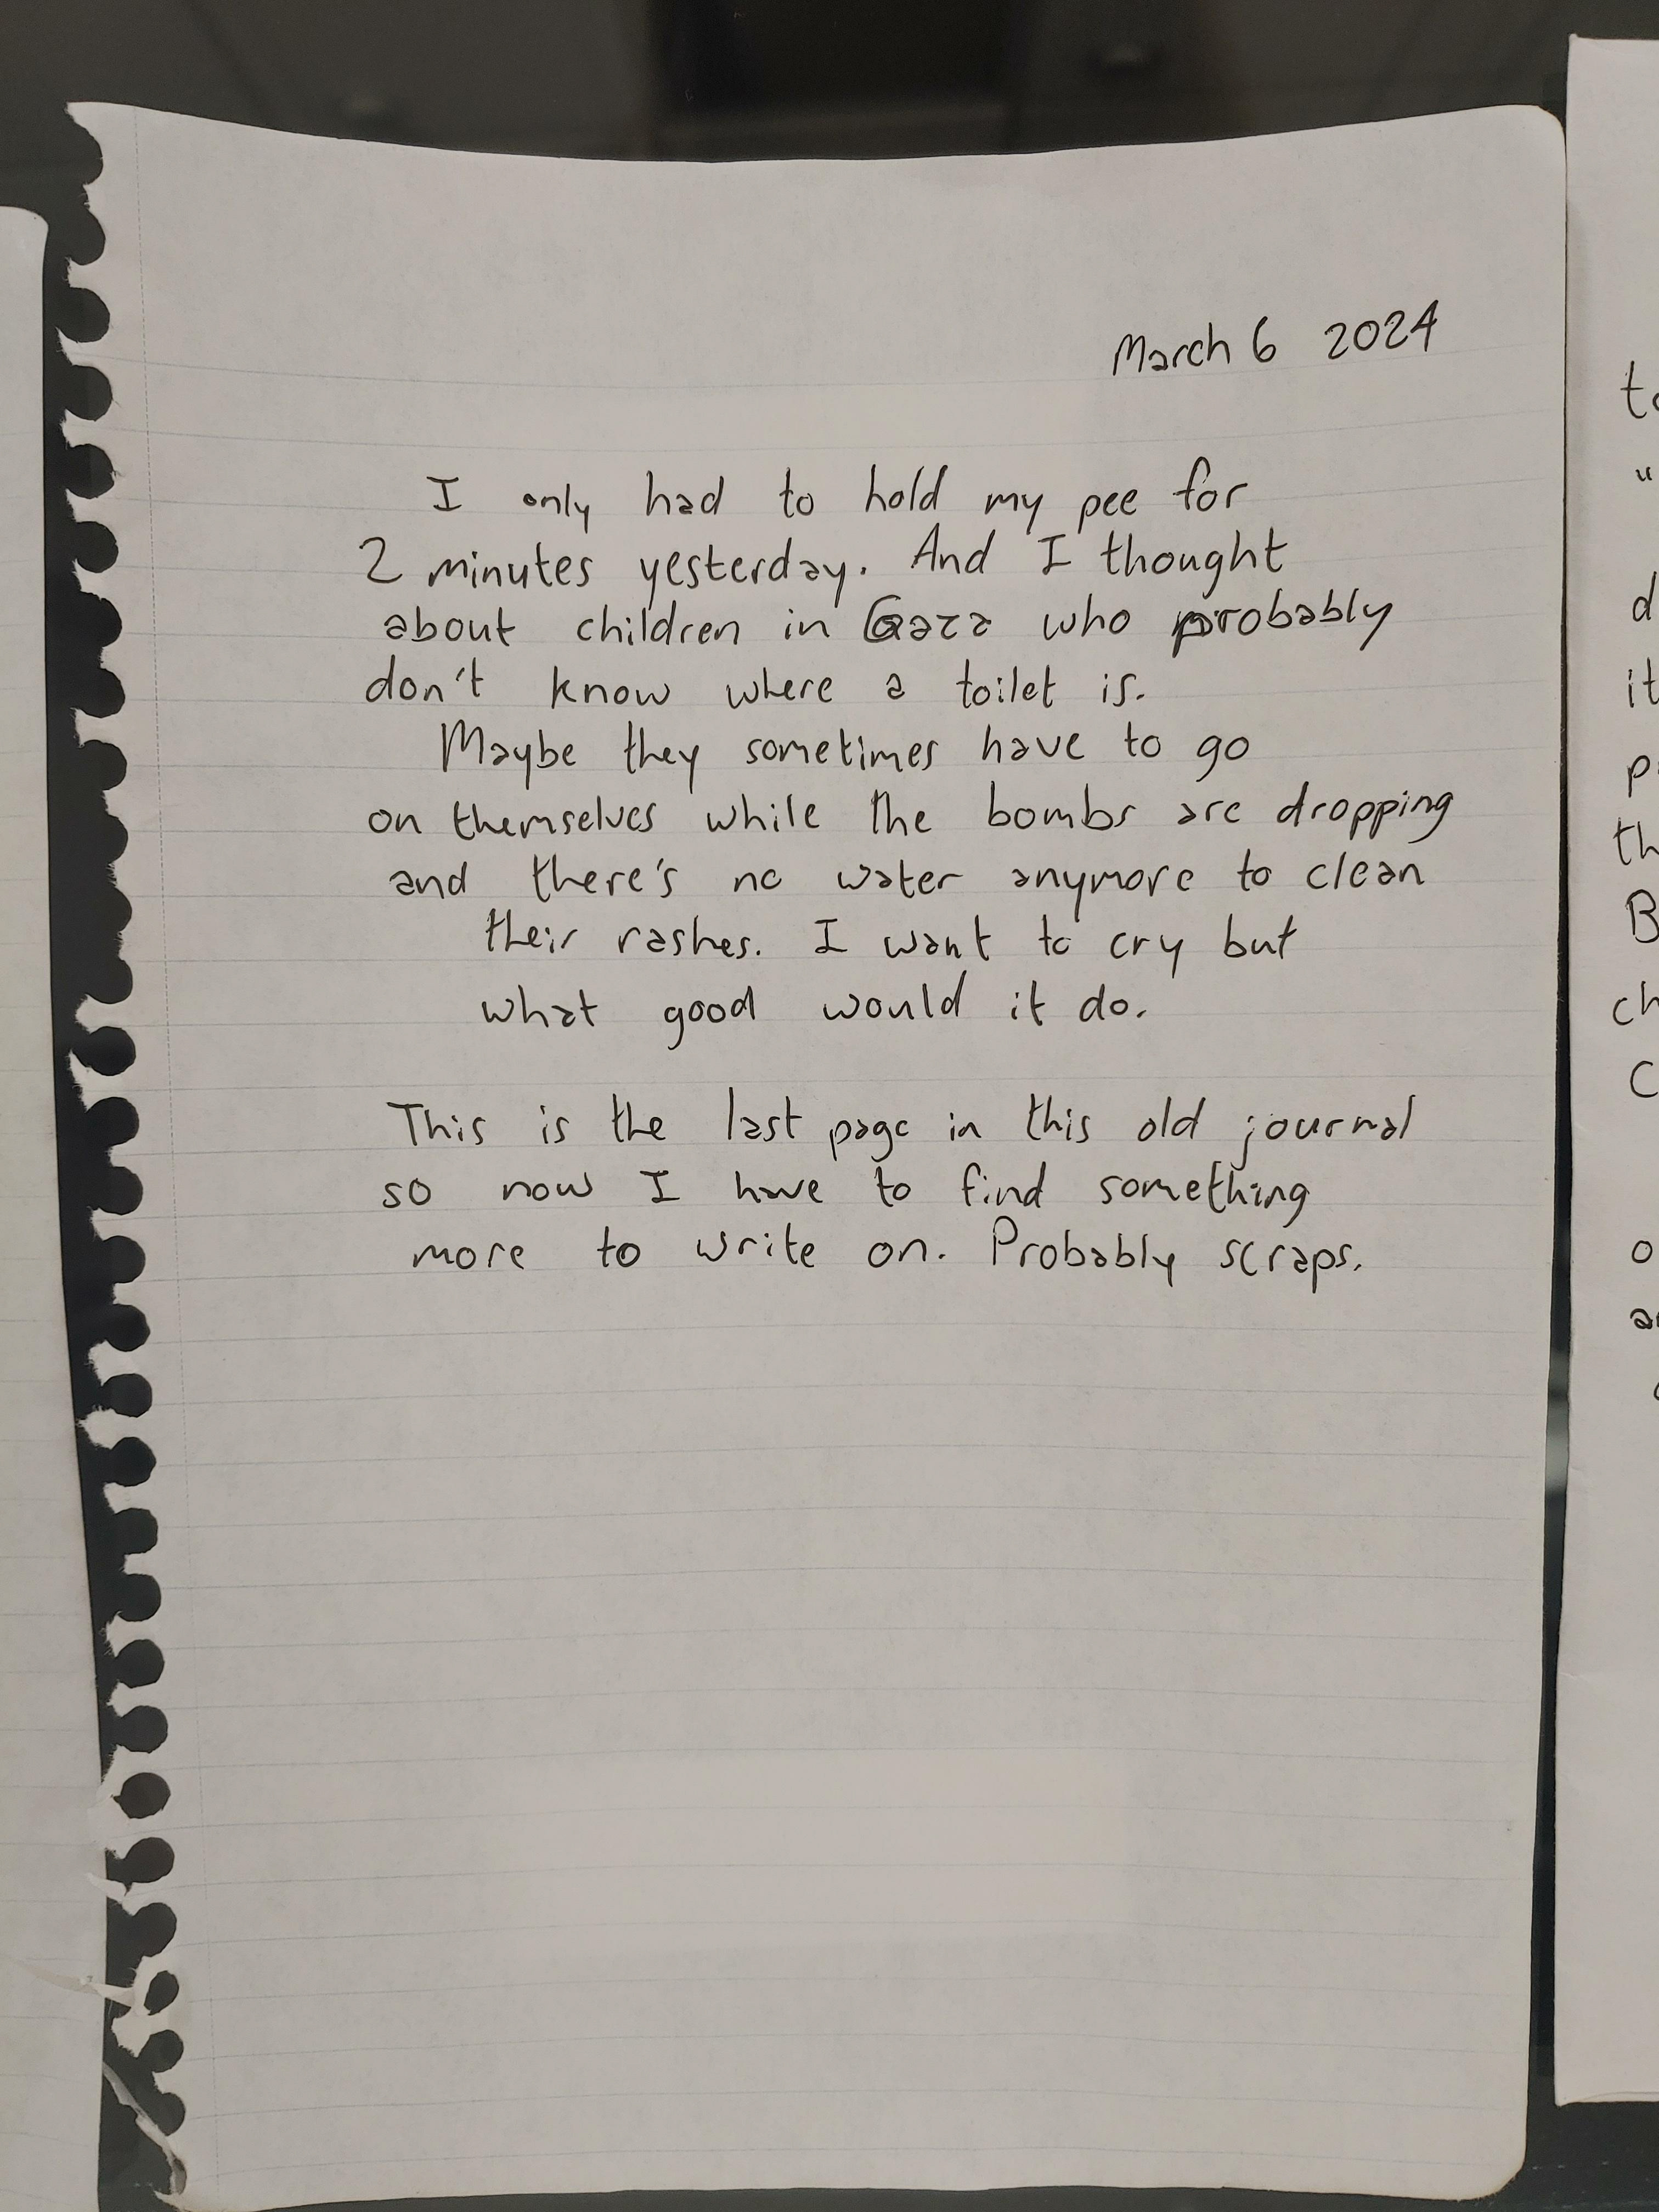 March 6 2024
I only had to hold my pee for
2 minutes yesterday. And I thought
about children in Gaza who probably
don't know where a toilet is.
Maybe they sometimes have to go
on themselves while the bombs are dropping
and there's no water anymore to clean
their rashes. I want to cry but
what good would it do.
This is the last page in this old journal
so now I have to find something
more to write on. Probably scraps.